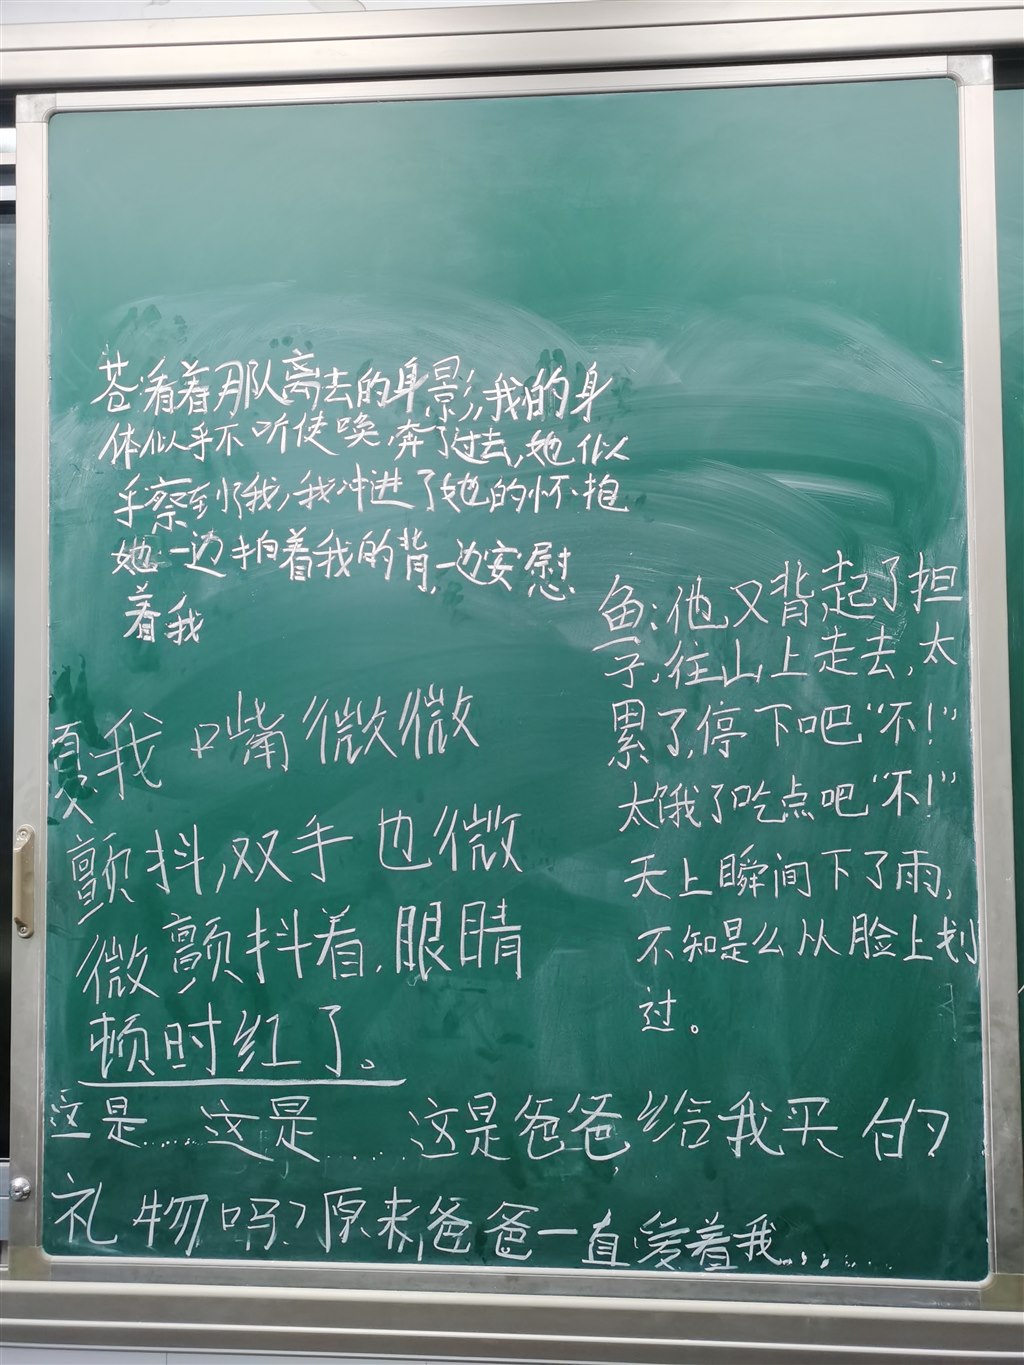 苍:看着那队离去的身影,我的身
体似乎不听使唤,奔了过去,她似
乎察到了我,我冲进了她的怀抱
她一边拍着我的背,一边安慰
着我
鱼:他又背起了担
子,往山上走去,太
累了,停下吧“不!”
太饿了吃点吧“不!”
天上瞬间下了雨,
不知是么从脸上划
过。
夏:我口嘴微微
颤抖,双手也微
微颤抖着,眼睛
顿时红了。
这是……这是……这是爸爸给我买的
礼物吗?原来,爸爸一直爱着我……